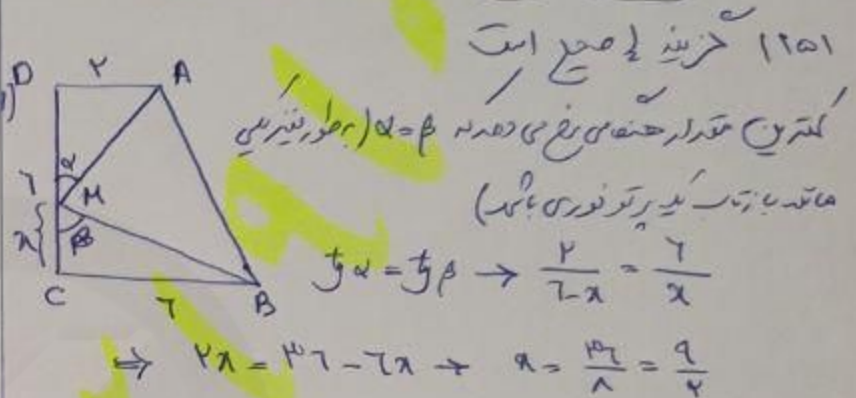 ۱۲۵۱) گزینه ۴ صحیح است
کمترین مقدار هنگامی رخ می دهد که α = β (به طور فیزیکی
مانند بازتاب یک پرتو نوری باشد)
D ۲ A
۶ α M
x β
C ۶ B
tgα = tgβ → ۲/(۶-x) = ۶/x
⇒ ۲x = ۳۶ - ۶x → x = ۳۶/۸ = ۹/۲